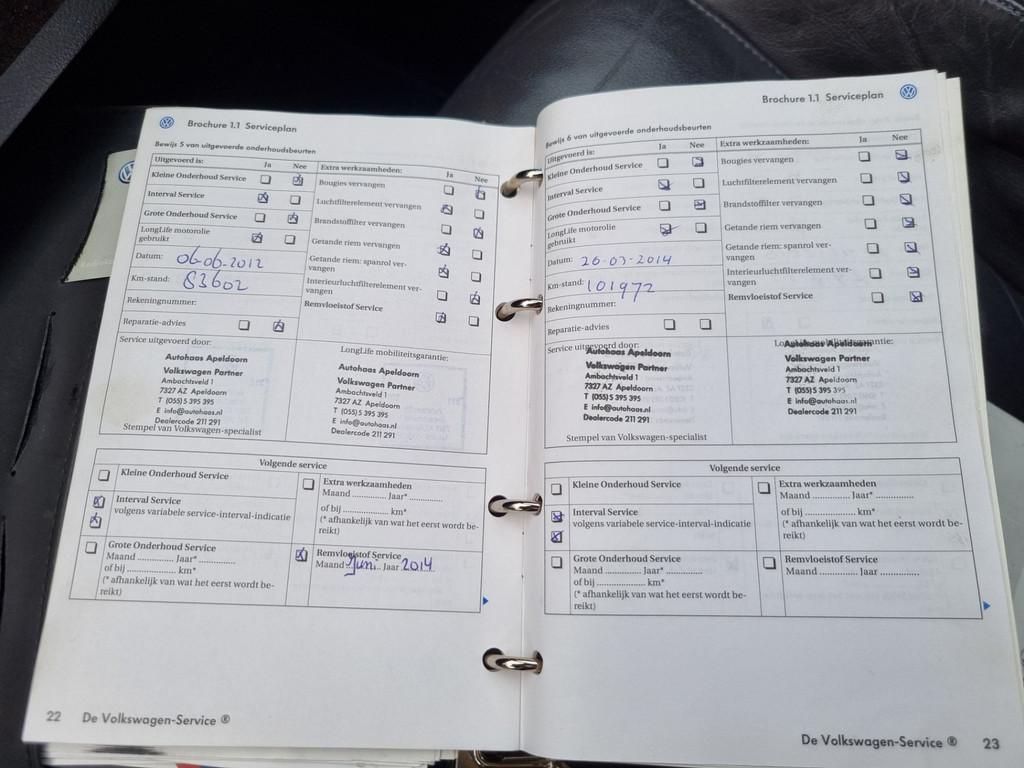 Brochure 1.1 Serviceplan
Bewijs 5 van uitgevoerde onderhoudsbeurten
Uitgevoerd is: Ja Nee
Kleine Onderhoud Service
Interval Service
Grote Onderhoud Service
LongLife motorolie
gebruikt
Datum: 06-06-2012
Km-stand: 83602
Rekeningnummer:
Reparatie-advies
Extra werkzaamheden: Ja Nee
Bougies vervangen
Luchtfilterelement vervangen
Brandstoffilter vervangen
Getande riem vervangen
Getande riem: spanrol ver-
vangen
Interieurluchtfilterelement ver-
vangen
Remvloeistof Service
Service uitgevoerd door:
Autohaas Apeldoorn
Volkswagen Partner
Ambachtsveld 1
7327 AZ Apeldoorn
T (055) 5 395 395
E info@autohaas.nl
Dealercode 211 291
Stempel van Volkswagen-specialist
LongLife mobiliteitsgarantie:
Autohaas Apeldoorn
Volkswagen Partner
Ambachtsveld 1
7327 AZ Apeldoorn
T (055) 5 395 395
E info@autohaas.nl
Dealercode 211 291
Volgende service
Kleine Onderhoud Service
Interval Service
volgens variabele service-interval-indicatie
Grote Onderhoud Service
Maand .............. Jaar* ..............
of bij .............. km*
(* afhankelijk van wat het eerst wordt be-
reikt)
Extra werkzaamheden
Maand .............. Jaar* ..............
of bij .............. km*
(* afhankelijk van wat het eerst wordt be-
reikt)
Remvloeistof Service
Maand Juni Jaar 2014
22 De Volkswagen-Service ®
Brochure 1.1 Serviceplan
Bewijs 6 van uitgevoerde onderhoudsbeurten
Uitgevoerd is: Ja Nee
Kleine Onderhoud Service
Interval Service
Grote Onderhoud Service
LongLife motorolie
gebruikt
Datum: 26-03-2014
Km-stand: 101972
Rekeningnummer:
Reparatie-advies
Extra werkzaamheden: Ja Nee
Bougies vervangen
Luchtfilterelement vervangen
Brandstoffilter vervangen
Getande riem vervangen
Getande riem: spanrol ver-
vangen
Interieurluchtfilterelement ver-
vangen
Remvloeistof Service
Service uitgevoerd door:
Autohaas Apeldoorn
Volkswagen Partner
Ambachtsveld 1
7327 AZ Apeldoorn
T (055) 5 395 395
E info@autohaas.nl
Dealercode 211 291
Stempel van Volkswagen-specialist
LongLife mobiliteitsgarantie:
Autohaas Apeldoorn
Volkswagen Partner
Ambachtsveld 1
7327 AZ Apeldoorn
T (055) 5 395 395
E info@autohaas.nl
Dealercode 211 291
Volgende service
Kleine Onderhoud Service
Interval Service
volgens variabele service-interval-indicatie
Grote Onderhoud Service
Maand .............. Jaar* ..............
of bij .............. km*
(* afhankelijk van wat het eerst wordt be-
reikt)
Extra werkzaamheden
Maand .............. Jaar* ..............
of bij .............. km*
(* afhankelijk van wat het eerst wordt be-
reikt)
Remvloeistof Service
Maand .............. Jaar ..............
De Volkswagen-Service ® 23